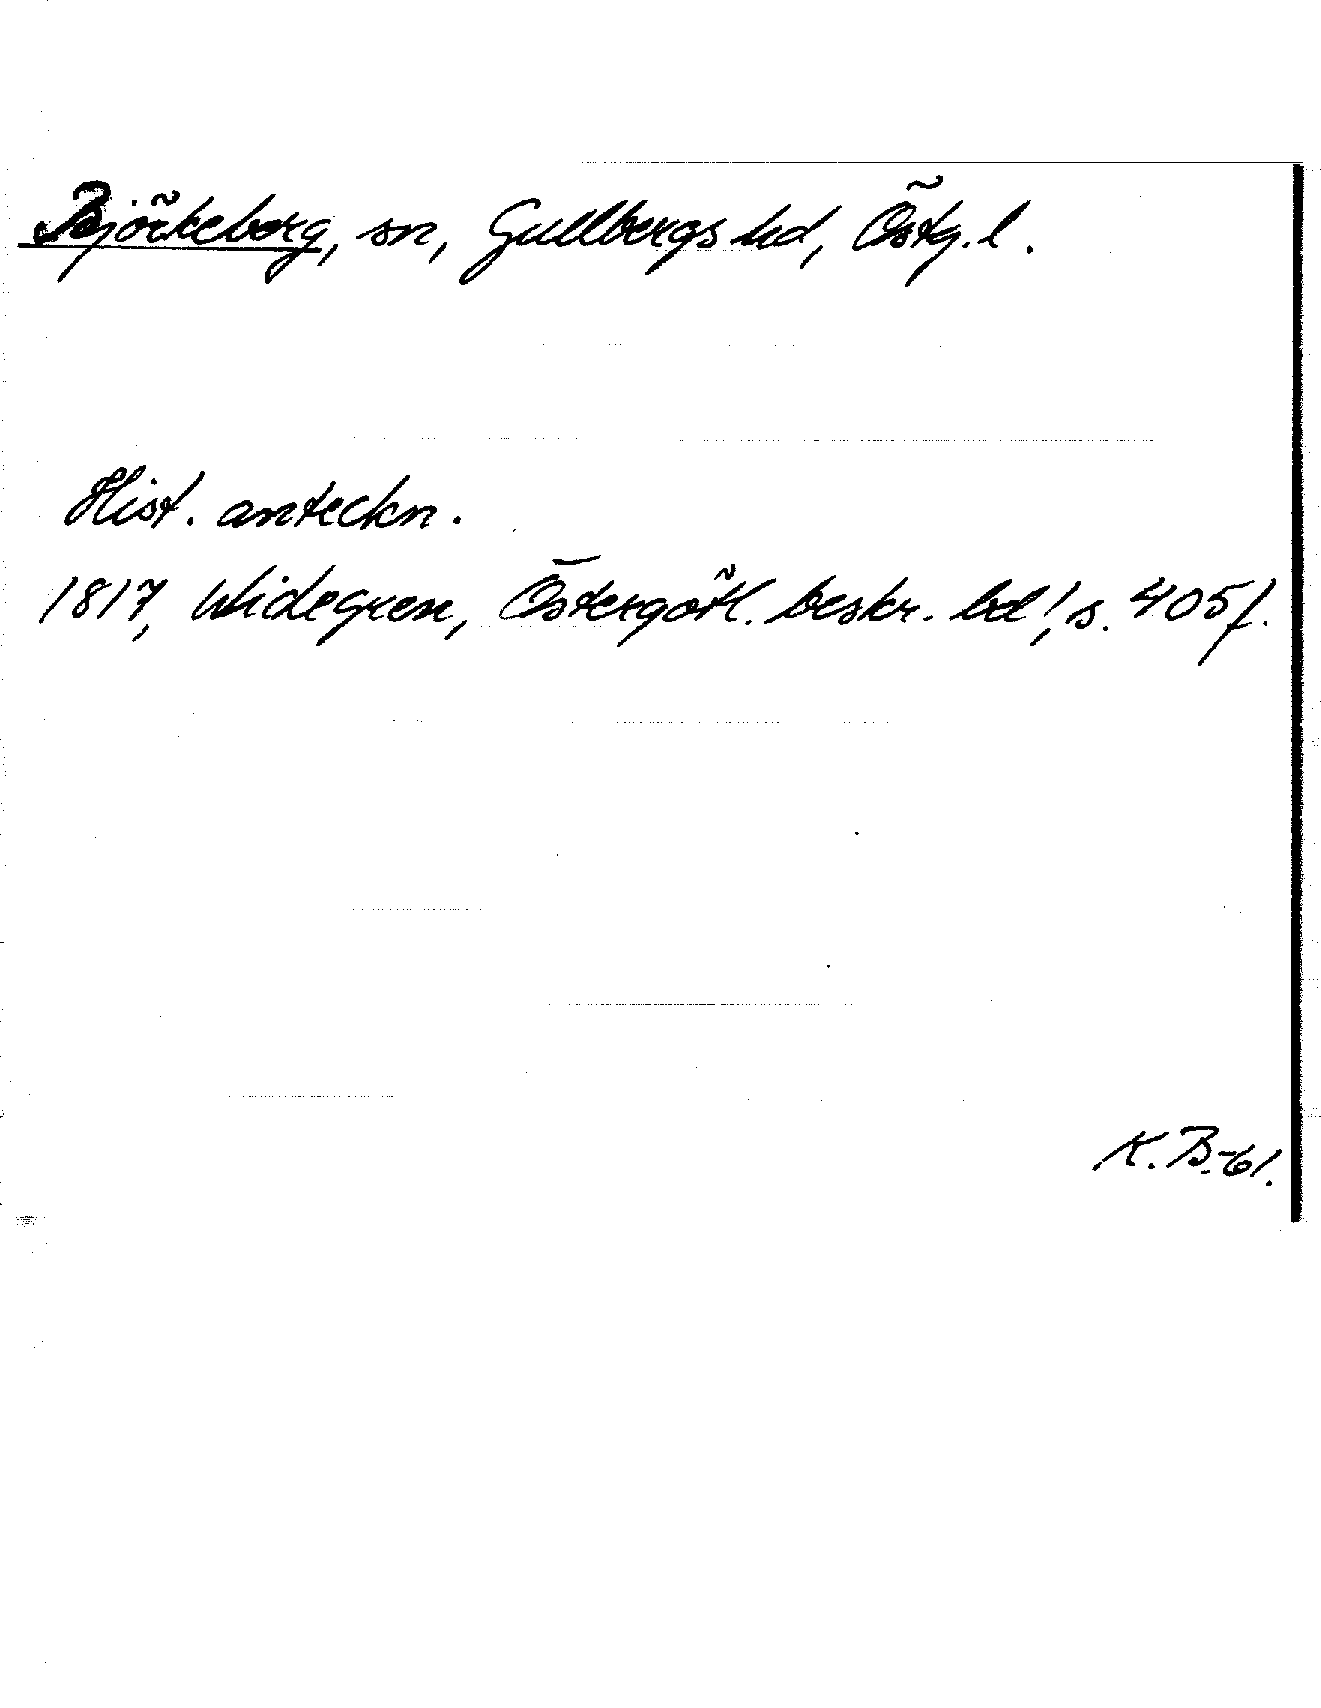 Björkeberg, sn, Gullbergs hd, Östg. l.
Hist. anteckn.
1817, Widegren, Östergötl. beskr. bd 1, s. 405 f.
K. B.-61.